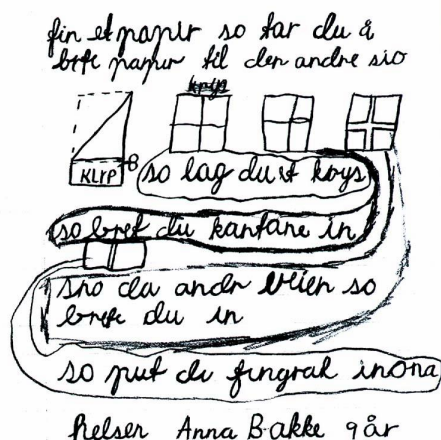 fin et papir so tar du å
bret papir til den andre sio
krys
KLIP
so lag du et krys
so bret du kantane in
sno du andr veien so
brett du in
so put du fingrak inona
helsen Anna Bakke 9 år